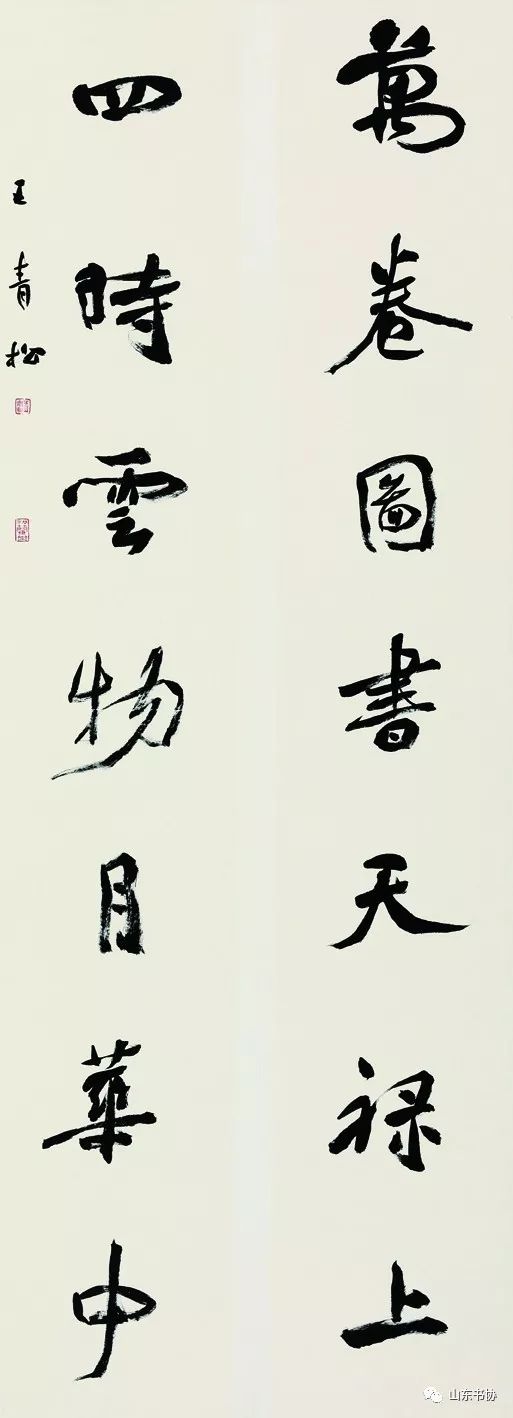 萬卷圖書天禄上
四時雲物月華中
王青松
山东书协